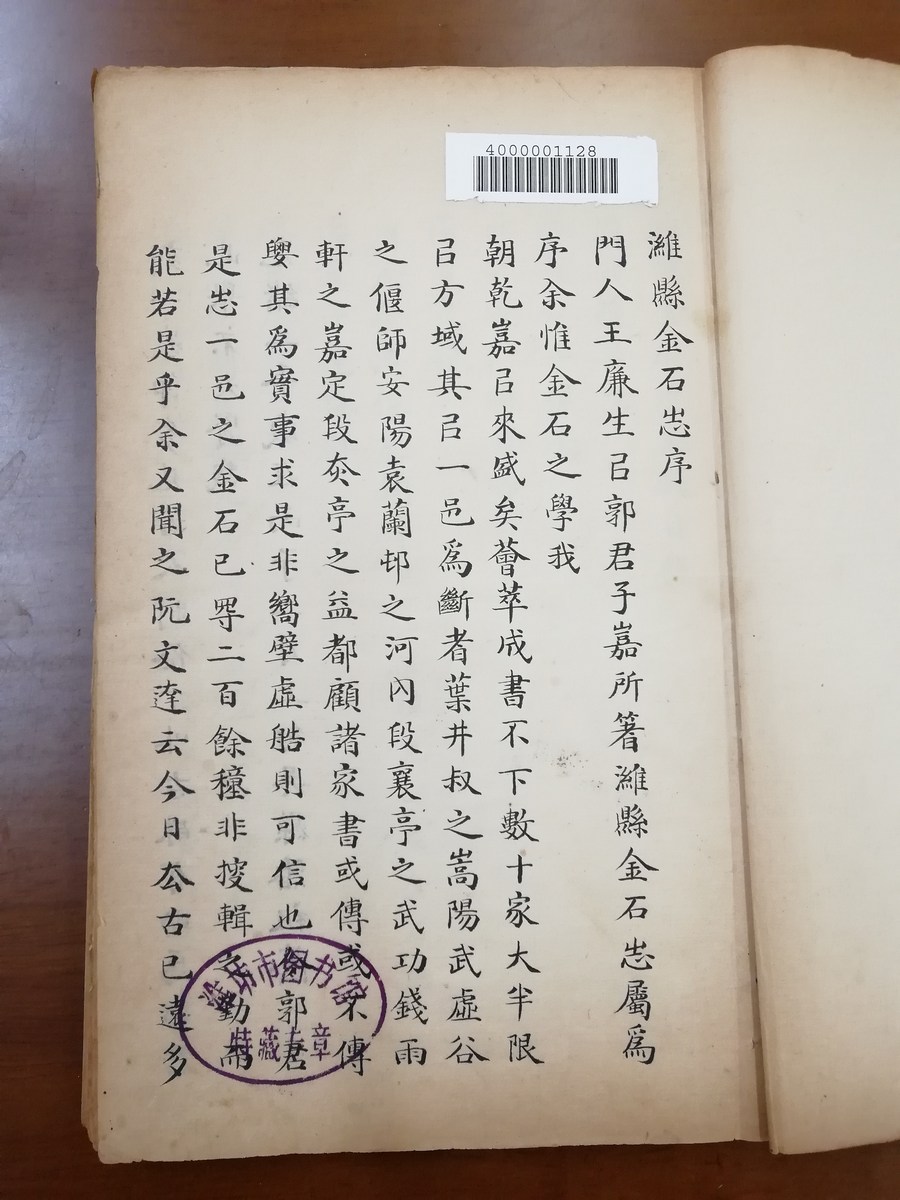 4000001128
濰縣金石志序
門人王廉生㠯郭君子嘉所箸濰縣金石志屬爲
序余惟金石之學我
朝乾嘉㠯來盛矣薈萃成書不下數十家大半限
㠯方域其㠯一邑爲斷者葉井叔之嵩陽武虛谷
之偃師安陽袁蘭邨之河內段襄亭之武功錢雨
軒之嘉定段赤亭之益都顧諸家書或傳或不傳
要其爲實事求是非嚮壁虛艁則可信也今郭君
是志一邑之金石已㝵二百餘穜非搜輯之勤而
能若是乎余又聞之阮文達云今日去古已遠多
潍坊市图书馆
特藏专章